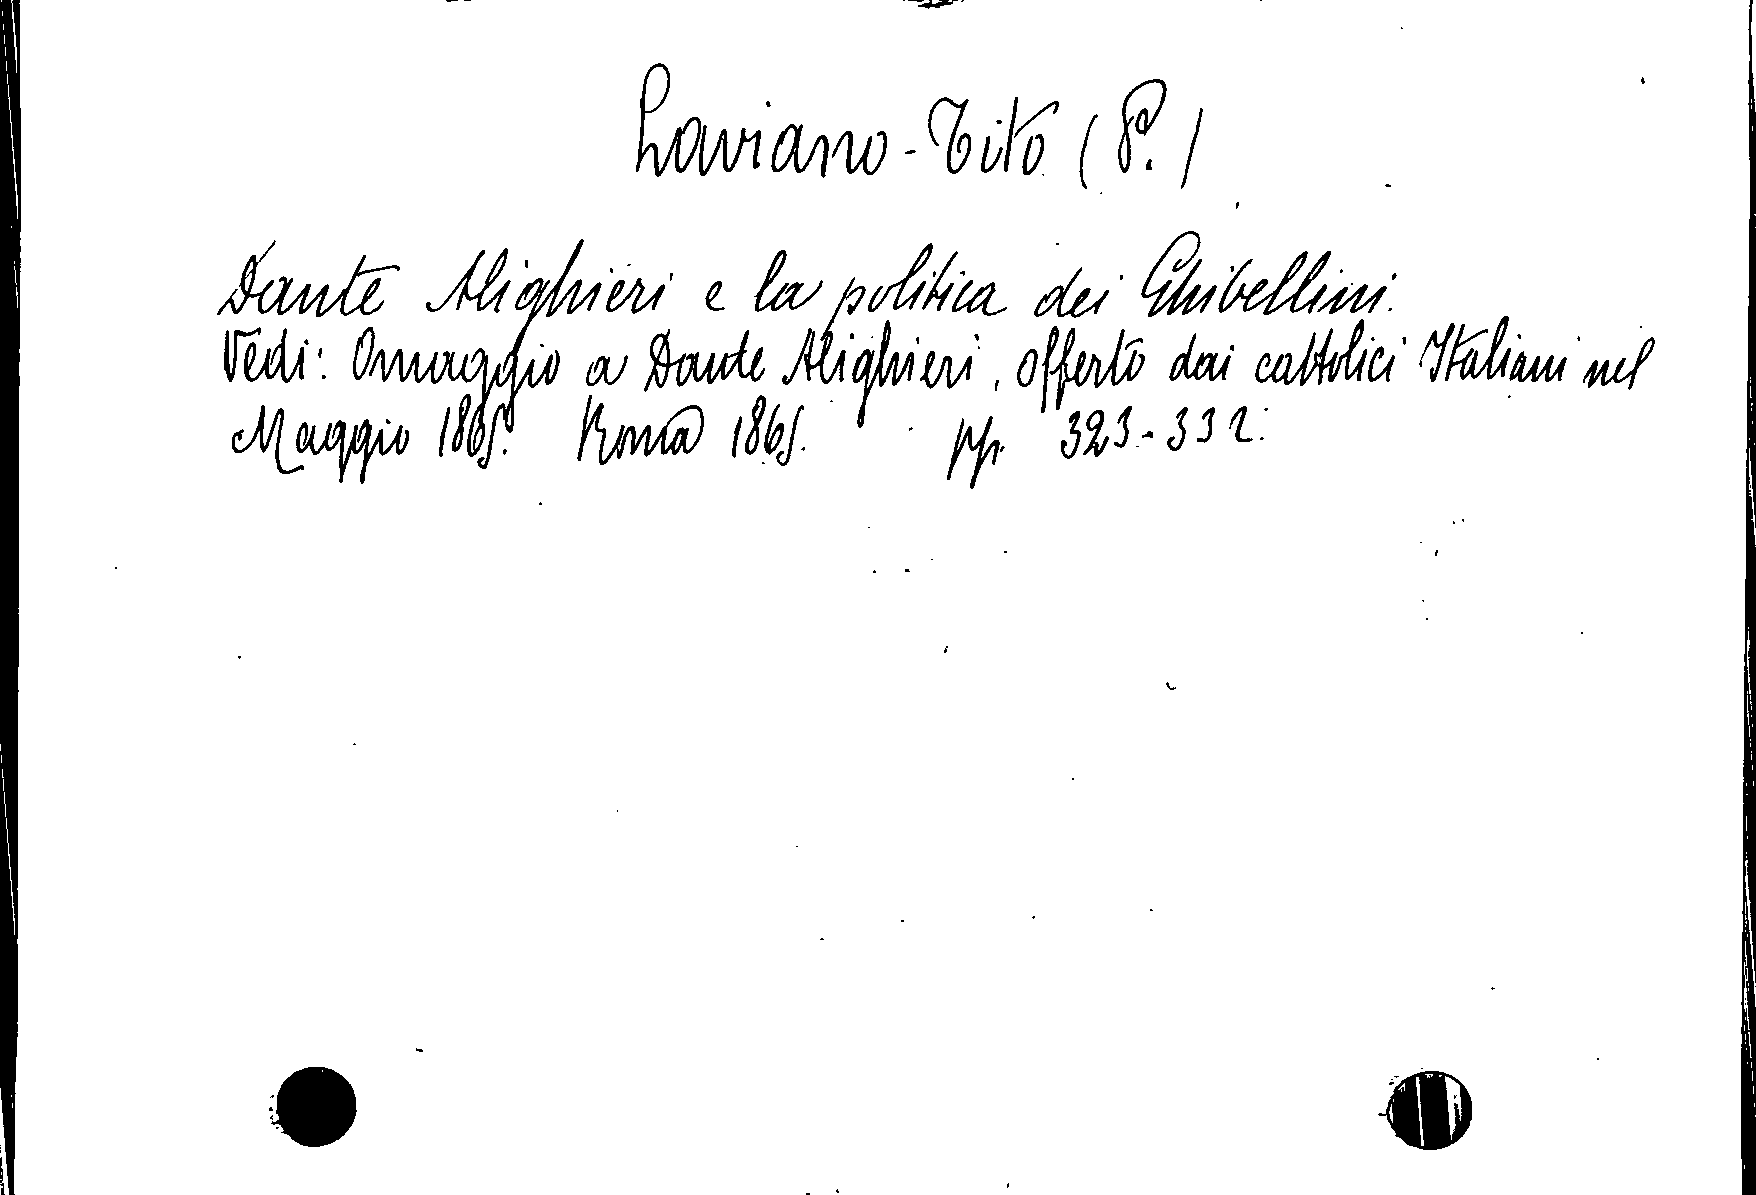 Laviano-Tito (P.)
Dante Alighieri e la politica dei Ghibellini.
Vedi: Omaggio a Dante Alighieri, offerto dai cattolici Italiani nel
Maggio 1865. Roma 1865. pp. 323-332.